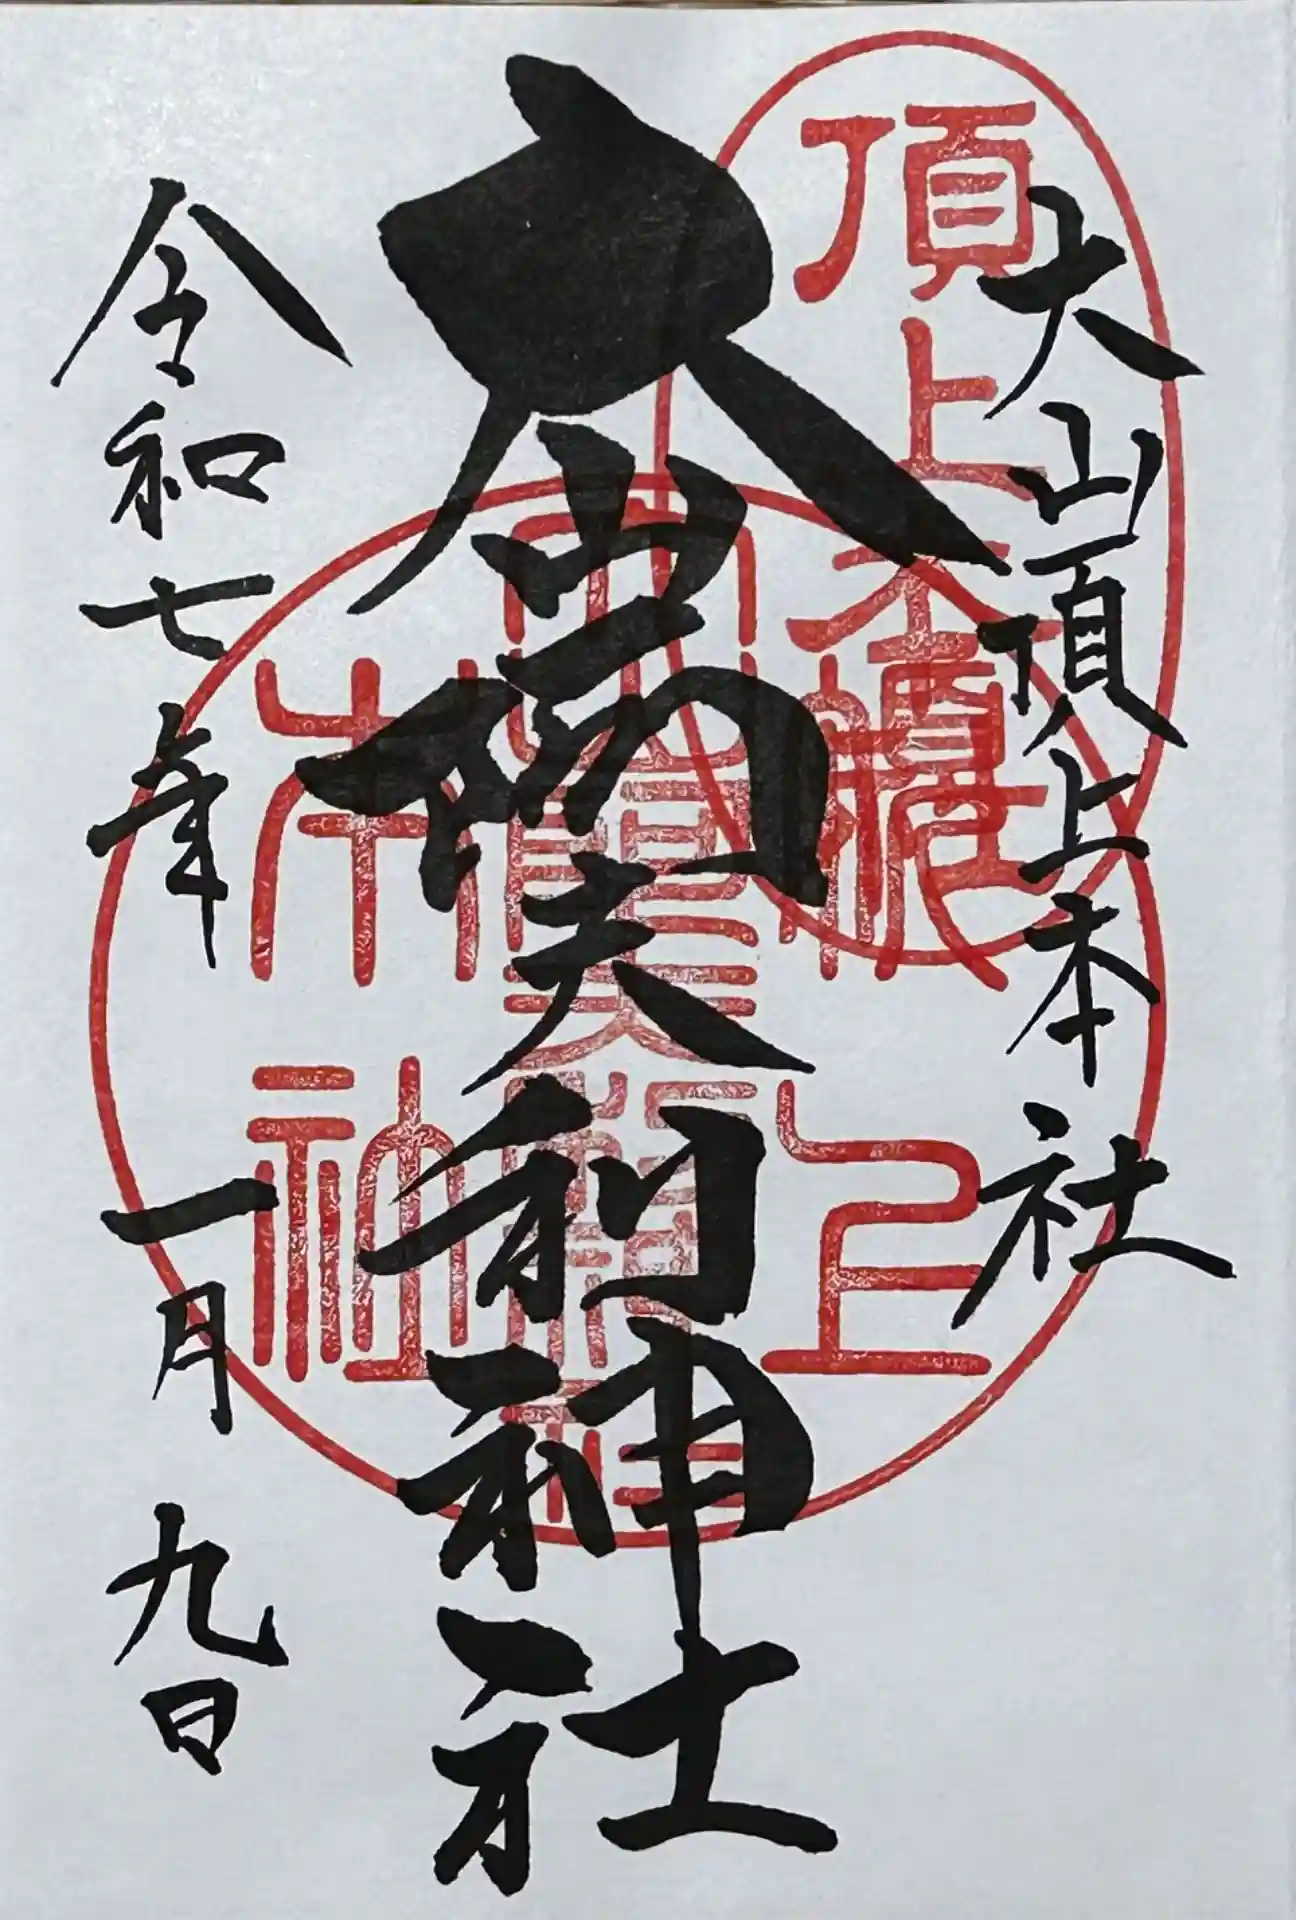 大山頂上本社
大山阿夫利神社
令和七年一月九日
頂上
頂上
本社